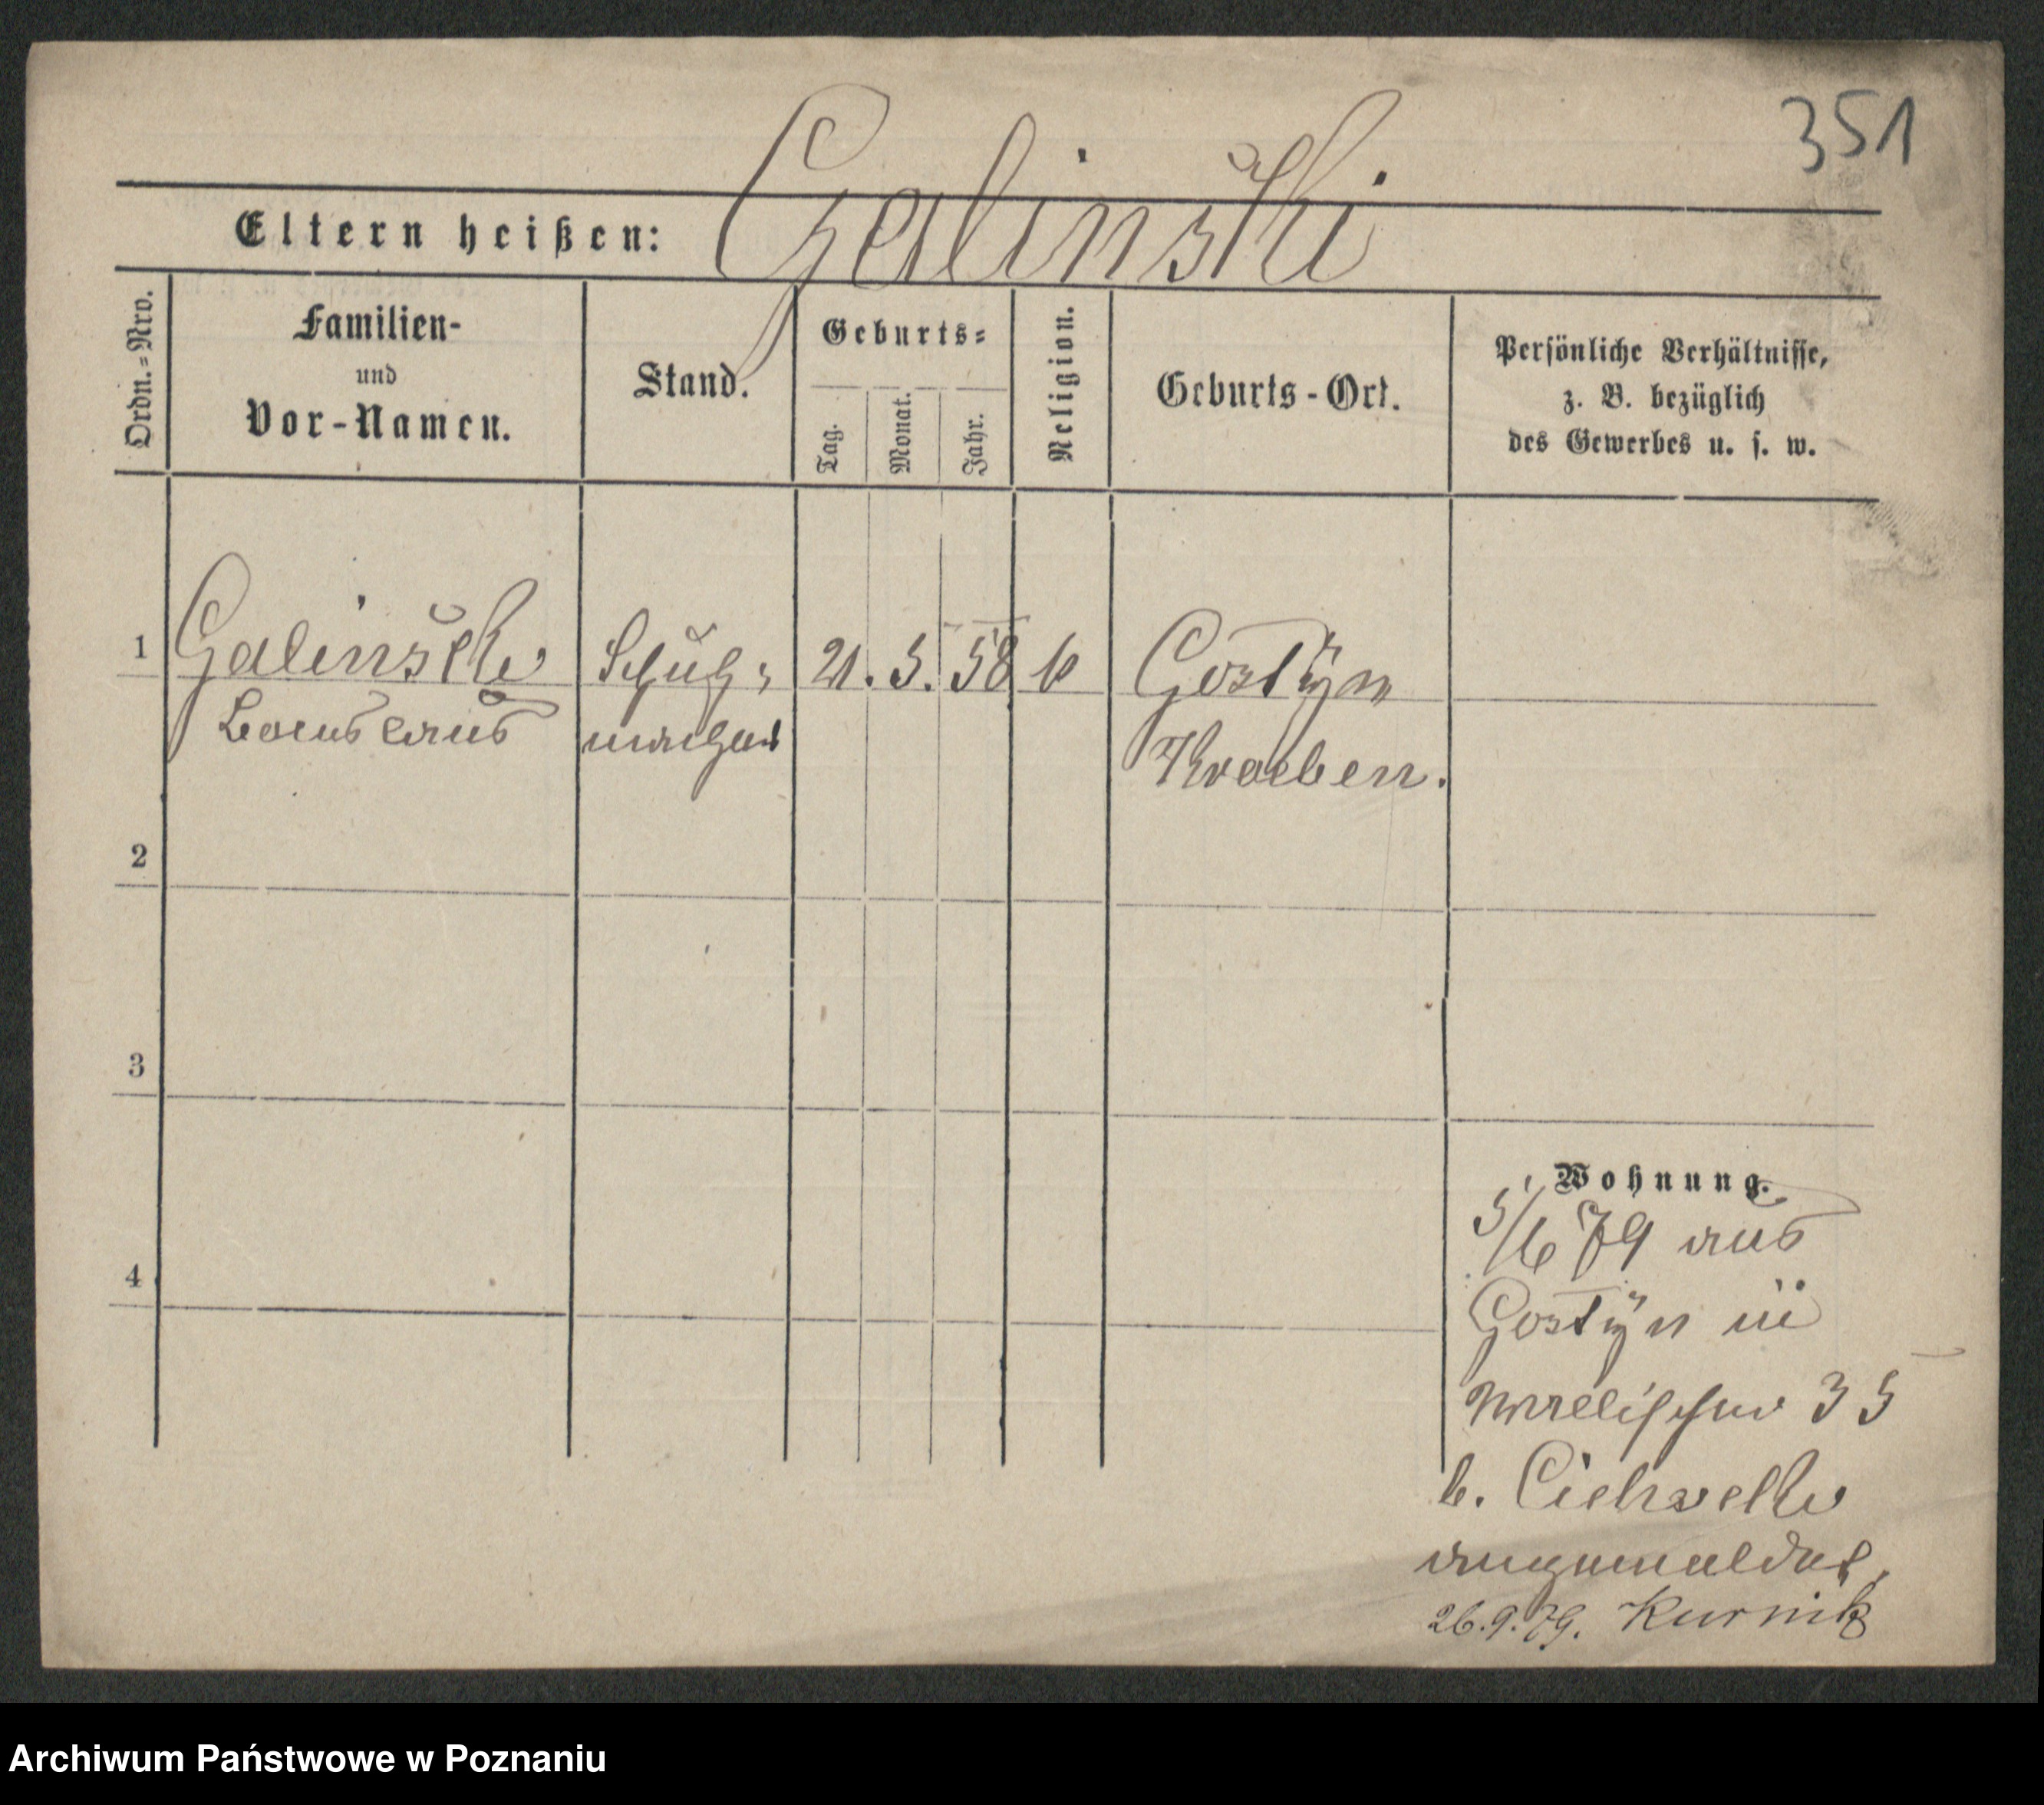 351
Eltern heißen: Galinski
Ordn.=Nro.
Familien-
und
Vor-Namen.
Stand.
Geburts=
Tag.
Monat.
Jahr.
Religion.
Geburts-Ort.
Persönliche Verhältnisse,
z. B. bezüglich
des Gewerbes u. s. w.
1
Galinski
Stanislaus
Schuh=
macher
21. 3. 58
Gostÿn
Kroeben.
2
3
4
Wohnung.
5/6 79 aus
Gostÿn in
Wallischei 35
b.
angemeldet,
26.9.79. Kurnik
Archiwum Państwowe w Poznaniu